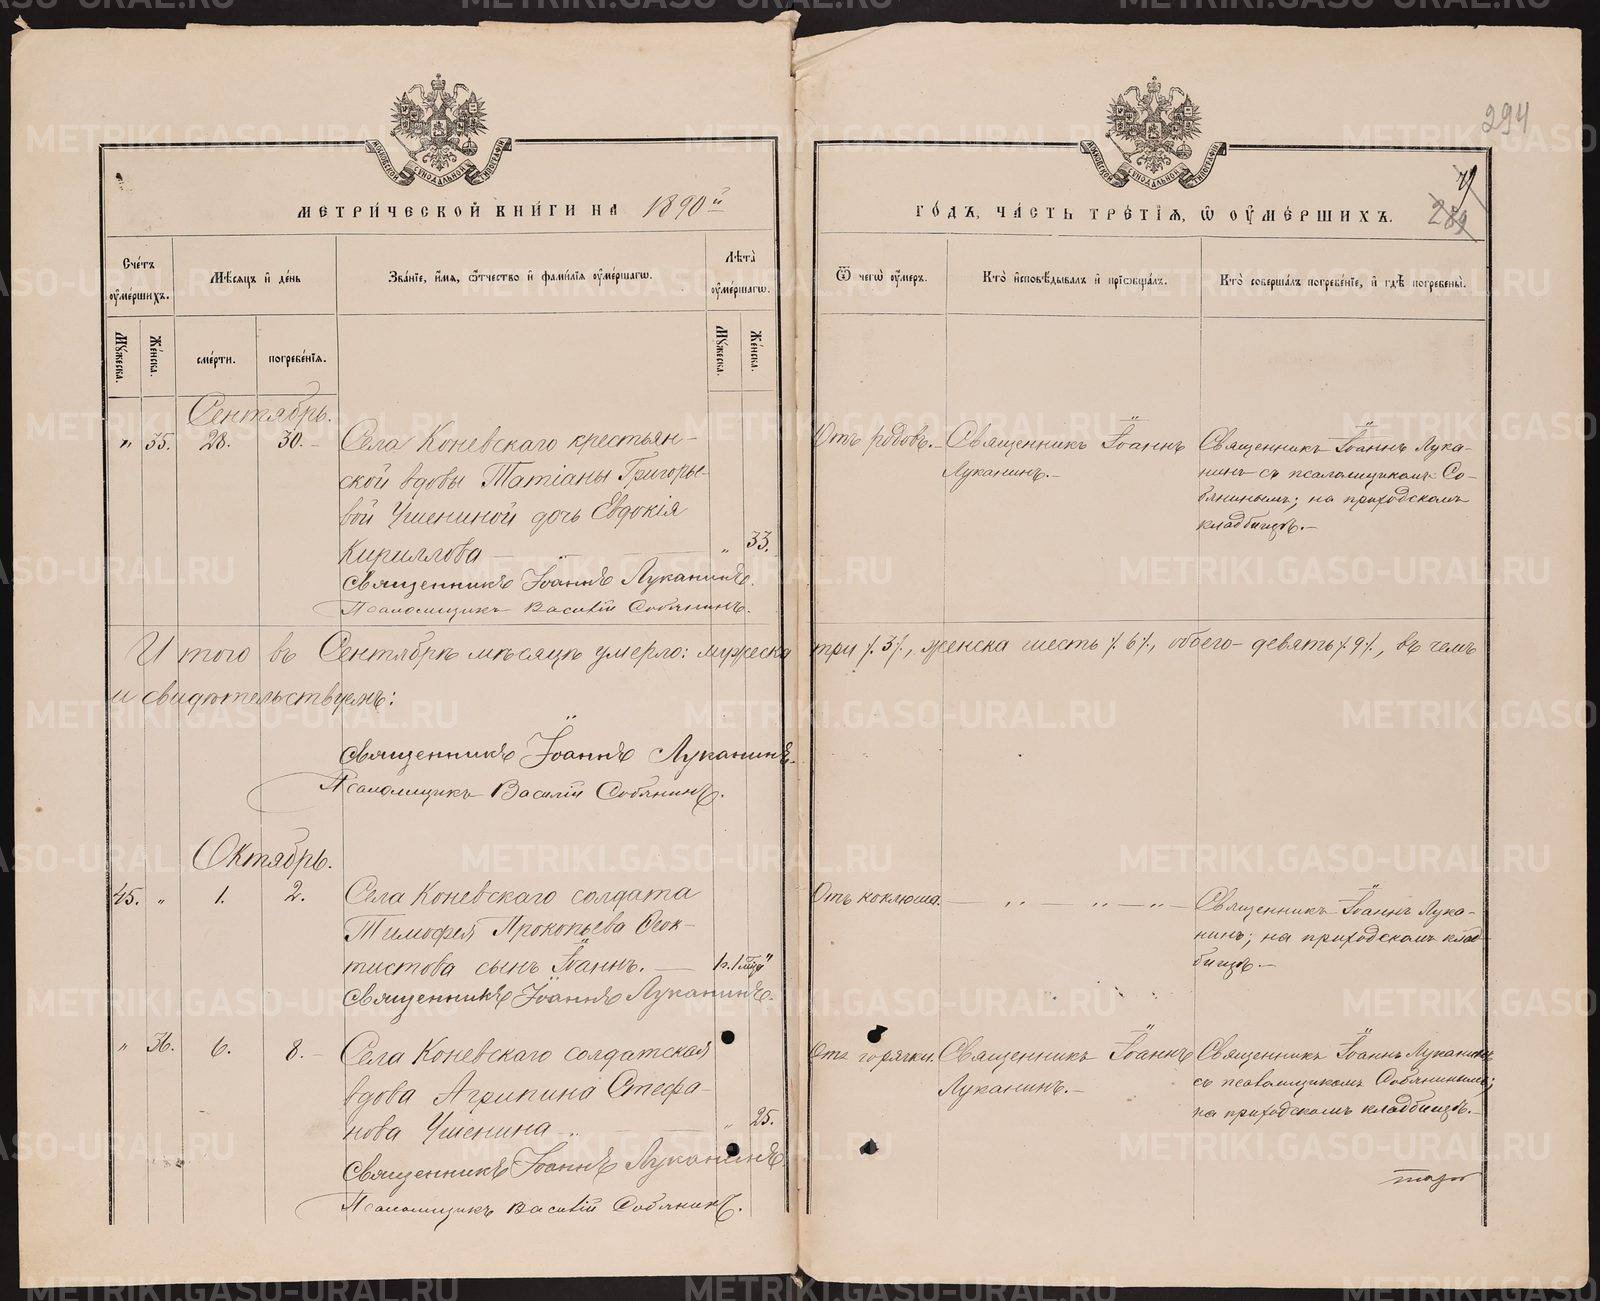 294
МЕТРИЧЕСКОЙ КНИГИ НА 1890й ГОДЪ, ЧАСТЬ ТРЕТІЯ, Ѿ ОУМЕРШИХЪ.
289
Счетъ оумершихъ.
Мѣсяцъ и день
Званіе, имя, ѿтчество и фамилія оумершагѡ.
Лѣта оумершагѡ.
Ѿ чегѡ оумеръ.
Кто исповѣдывалъ и пріѡбщалъ.
Кто совершалъ погребеніе, и гдѣ погребены.
Мужеска.
Женска.
смерти.
погребенія.
Мужеска.
Женска.
Сентябрь.
" 35. 28. 30.
Села Коневскаго крестьян-
ской вдовы Татіаны Григорье-
вой Ушениной дочь Евдокія
Кириллова — " 33.
Священникъ Іоаннъ Луканинъ.
Псаломщикъ Василій Собянинъ.
Отъ родовъ.
Священникъ Іоаннъ
Луканинъ.
Священникъ Іоаннъ Лука-
нинъ съ псаломщикомъ Со-
бянинымъ; на приходскомъ
кладбищѣ.
Итого въ Сентябрѣ мѣсяцѣ умерло: мужеска три /.3/., женска шесть /.6/., обоего - девять /.9/., въ чемъ
и свидѣтельствуемъ:
Священникъ Іоаннъ Луканинъ.
Псаломщикъ Василій Собянинъ.
Октябрь.
45. " 1. 2.
Села Коневскаго солдата
Тимофея Прокопьева Феок-
тистова сынъ Іоаннъ. —
Священникъ Іоаннъ Луканинъ.
Отъ коклюша. — " — " — " —
Священникъ Іоаннъ Лука-
нинъ; на приходскомъ клад-
бищѣ.—
" 36. 6. 8.
Села Коневскаго солдатская
вдова Агрипина Стефа-
нова Ушенина — " 25.
Священникъ Іоаннъ Луканинъ
Псаломщикъ Василій Собянинъ.
Отъ горячки.
Священникъ Іоаннъ
Луканинъ.—
Священникъ Іоаннъ Луканинъ
съ псаломщикомъ Собянинымъ;
на приходскомъ кладбищѣ.
METRIKI.GASO-URAL.RU